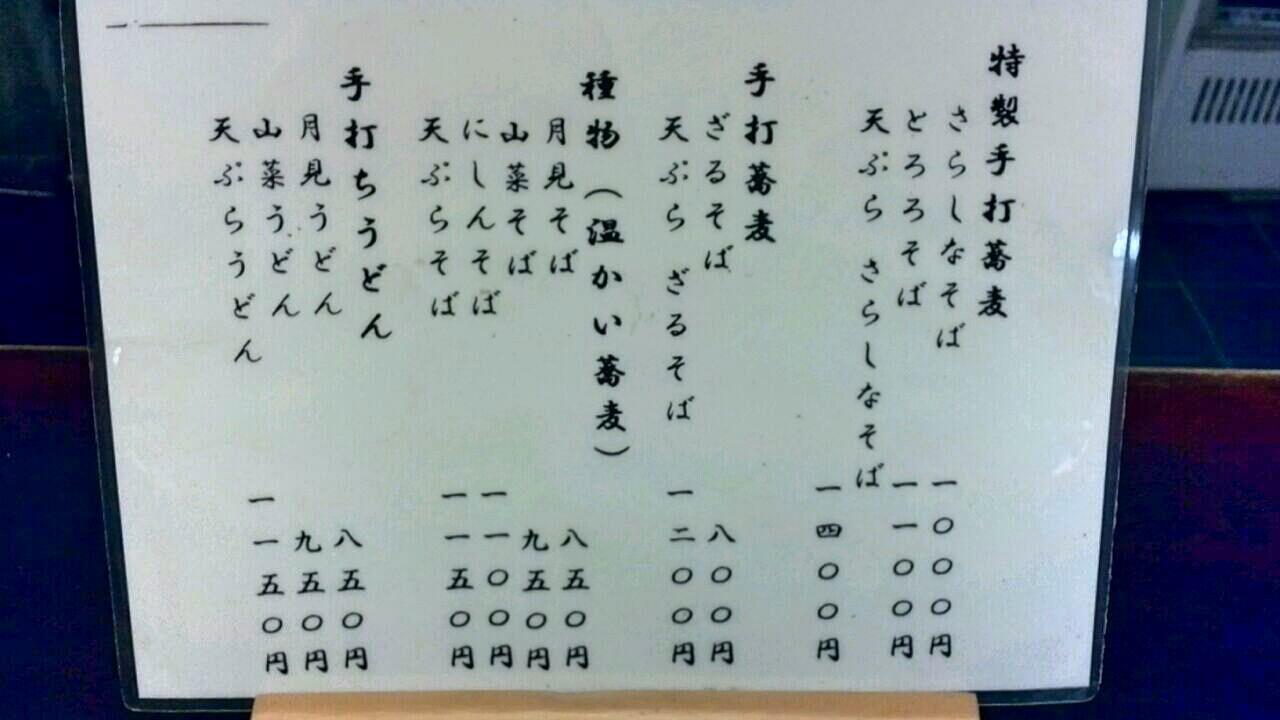 特製手打蕎麦
さらしなそば 一〇〇〇円
とろろそば 一一〇〇円
天ぷら さらしなそば 一四〇〇円
手打蕎麦
ざるそば 八〇〇円
天ぷら ざるそば 一二〇〇円
種物(温かい蕎麦)
月見そば 八五〇円
山菜そば 九五〇円
にしんそば 一一〇〇円
天ぷらそば 一一五〇円
手打ちうどん
月見うどん 八五〇円
山菜うどん 九五〇円
天ぷらうどん 一一五〇円